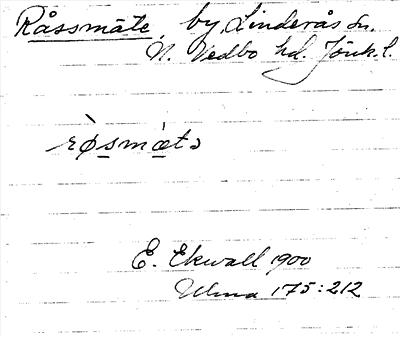 Råssmäte, by, Linderås sn.
N. Vedbo hd. Jönk. l.
rø̀smæ̀tə
E. Ekwall 1900
Ulma 175:212